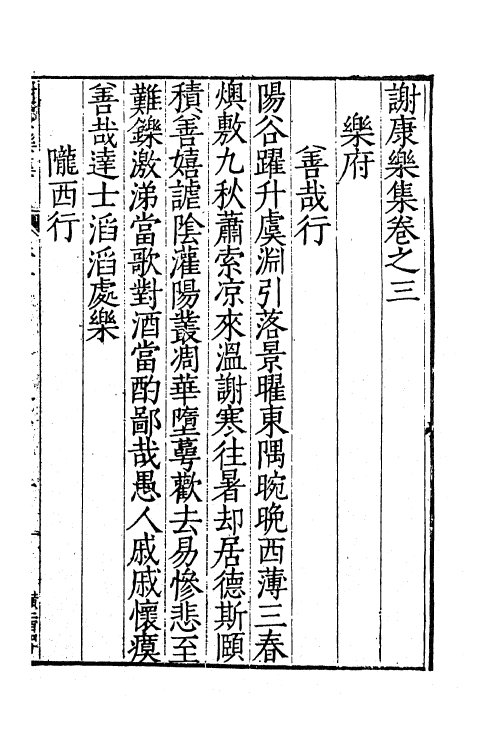 謝康樂集卷之三
樂府
善哉行
陽谷躍升虞淵引落景曜東隅晼晚西薄三春
燠敷九秋蕭索涼來溫謝寒往暑却居德斯頤
積善嬉謔陰灌陽叢凋華墮蕚歡去易慘悲至
難鑠激涕當歌對酒當酌鄙哉愚人戚戚懷瘼
善哉達士滔滔處樂
隴西行